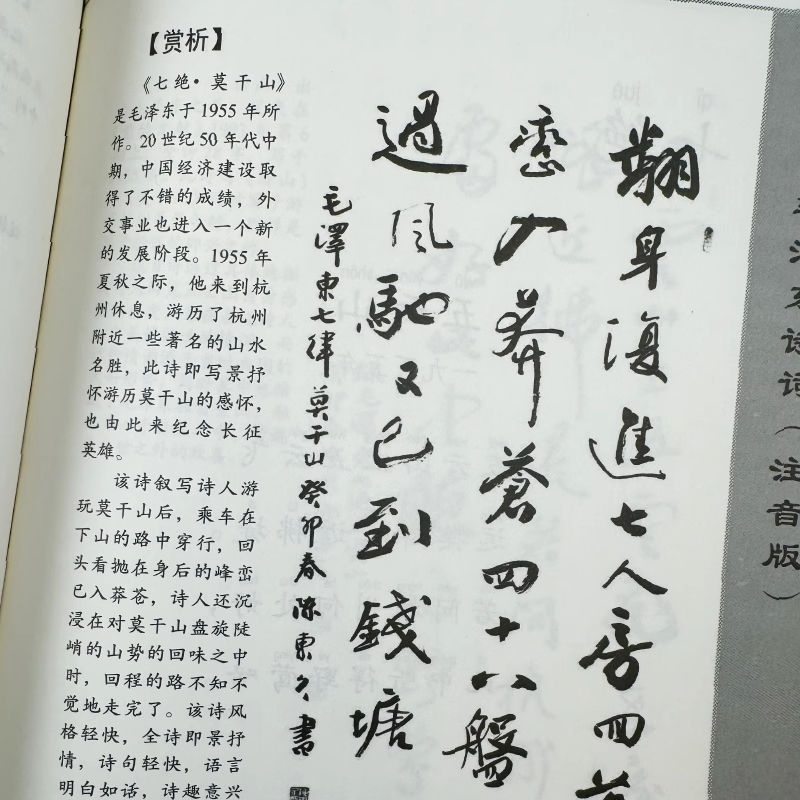 【赏析】
《七绝·莫干山》
是毛泽东于1955年所
作。20世纪50年代中
期，中国经济建设取
得了不错的成绩，外
交事业也进入一个新
的发展阶段。1955年
夏秋之际，他来到杭
州休息，游历了杭州
附近一些著名的山水
名胜，此诗即写景抒
怀游历莫干山的感怀，
也由此来纪念长征
英雄。
该诗叙写诗人游
玩莫干山后，乘车在
下山的路中穿行，回
头看抛在身后的峰峦
已入莽苍，诗人还沉
浸在对莫干山盘旋陡
峭的山势的回味之中
时，回程的路不知不
觉地走完了。该诗风
格轻快，全诗即景抒
情，诗句轻快，语言
明白如话，诗趣意兴
翻身復進七人房回
巒入莽蒼四十八盤
過風馳又已到錢塘
毛澤東七律莫干山癸卯春陳東久書
泽东诗词（注音版）